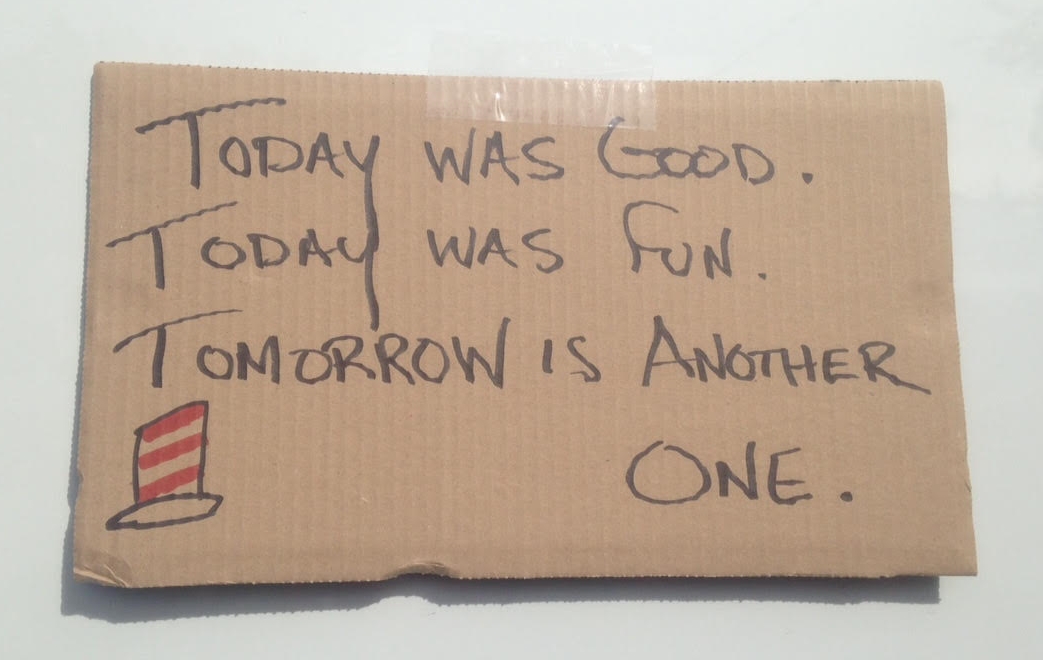 TODAY WAS GOOD.
TODAY WAS FUN.
TOMORROW IS ANOTHER
ONE.